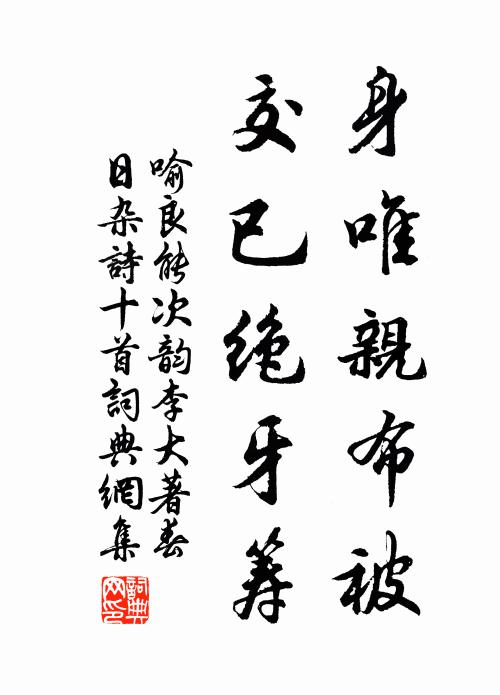 身唯親布被
交已絶牙筹
喻良能次韵李大著春
日杂詩十首詞典網集
詞典网印